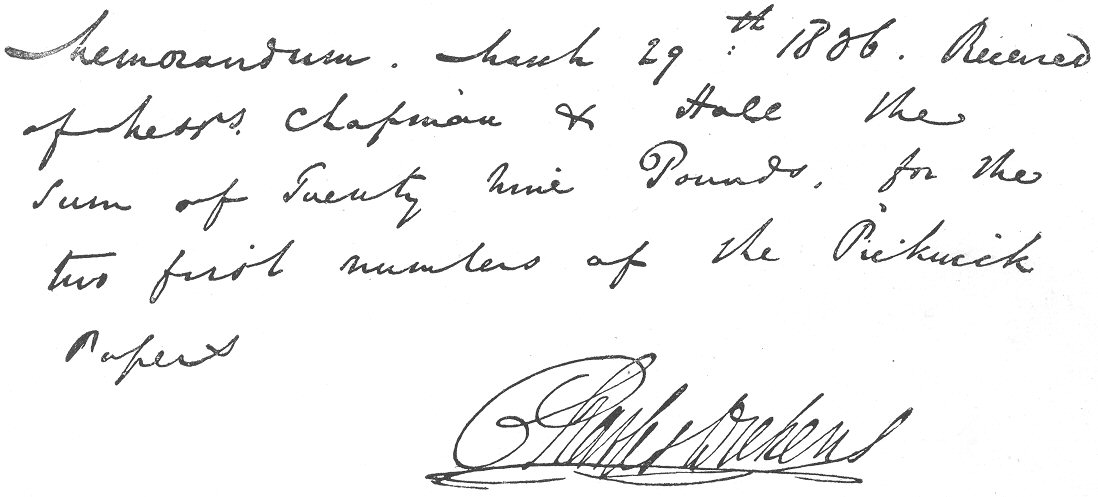 Memorandum. March 29th 1836. Received
of Messrs. Chapman & Hall the
Sum of Twenty Nine Pounds, for the
two first numbers of the Pickwick
Papers
Charles Dickens